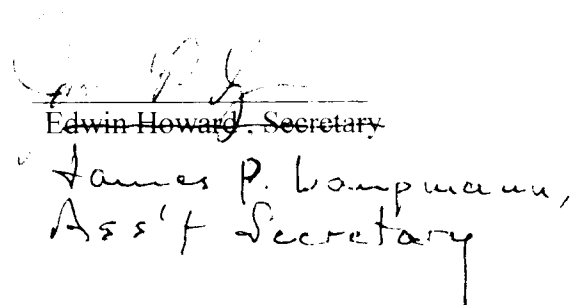 Edwin Howard, Secretary
James P. 
Ass't Secretary